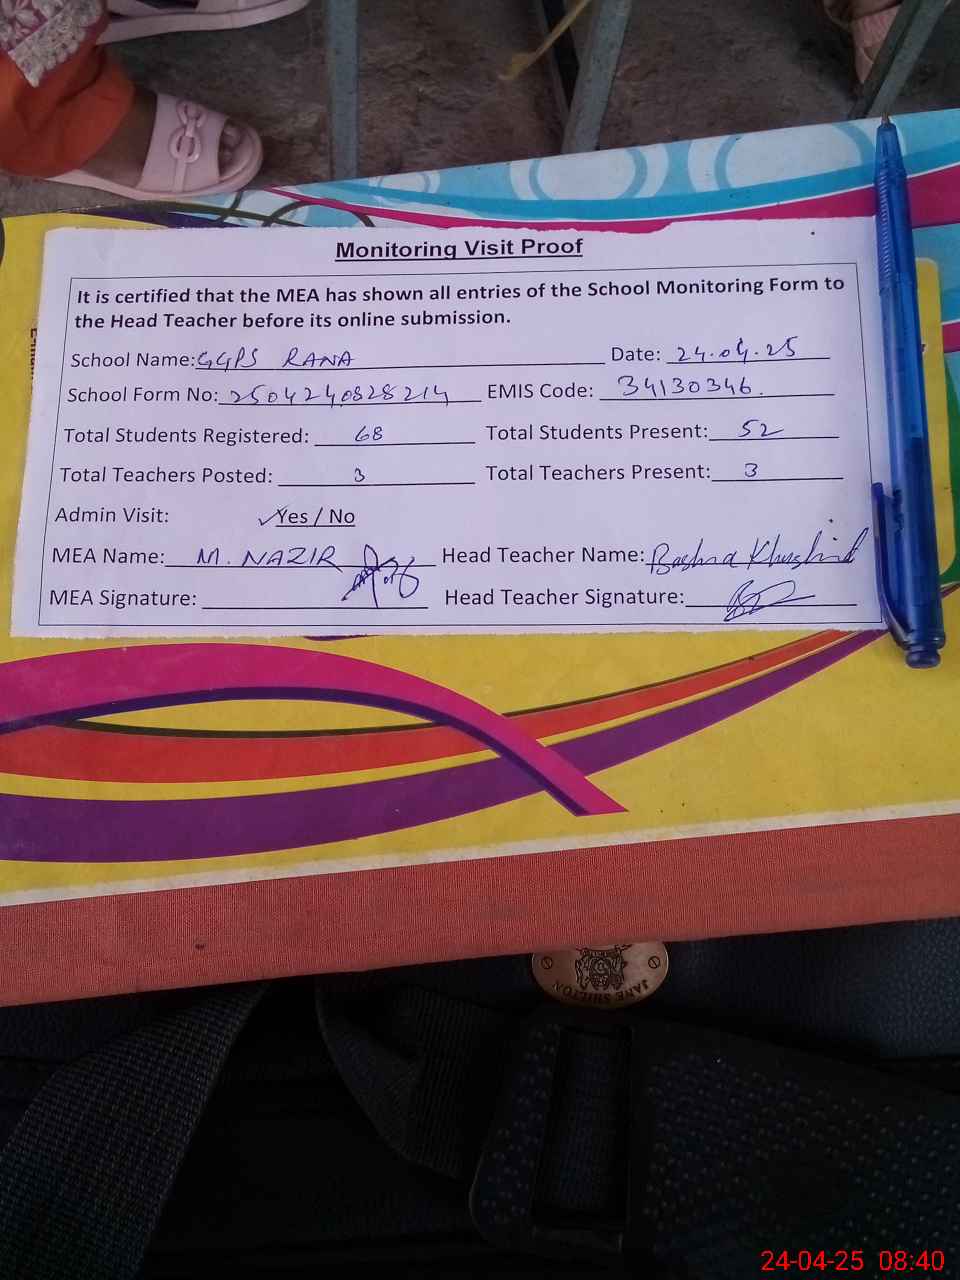 Monitoring Visit Proof
It is certified that the MEA has shown all entries of the School Monitoring Form to
the Head Teacher before its online submission.
School Name: GGPS RANA Date: 24.04.25
School Form No: 2504240828214 EMIS Code: 34130346.
Total Students Registered: 68 Total Students Present: 52
Total Teachers Posted: 3 Total Teachers Present: 3
Admin Visit: ✓Yes / No
MEA Name: M. NAZIR Head Teacher Name: Khurshid
MEA Signature: Head Teacher Signature:
JANE SHILTON
24-04-25 08:40